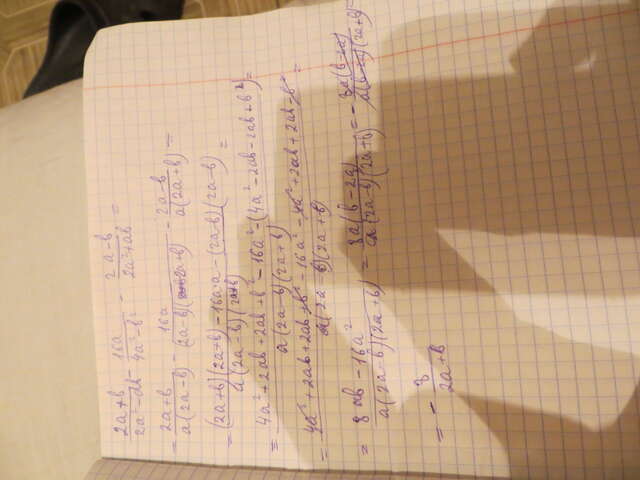 (2a+b)/(2a²-ab) - 16a/(4a²-b²) - (2a-b)/(2a²+ab) =
= (2a+b)/(a(2a-b)) - 16a/((2a-b)(2a+b)) - (2a-b)/(a(2a+b)) =
= ((2a+b)(2a+b)-16a·a-(2a-b)(2a-b))/(a(2a-b)(2a+b)) =
= (4a²+2ab+2ab+b²-16a²-(4a²-2ab-2ab+b²))/(a(2a-b)(2a+b)) =
= (4a²+2ab+2ab+b²-16a²-4a²+2ab+2ab-b²)/(a(2a-b)(2a+b)) =
= (8ab-16a²)/(a(2a-b)(2a+b)) = (8a(b-2a))/(a(2a-b)(2a+b)) = - (8a(b-2a))/(a(b-2a)(2a+b)) =
= - 8/(2a+b)